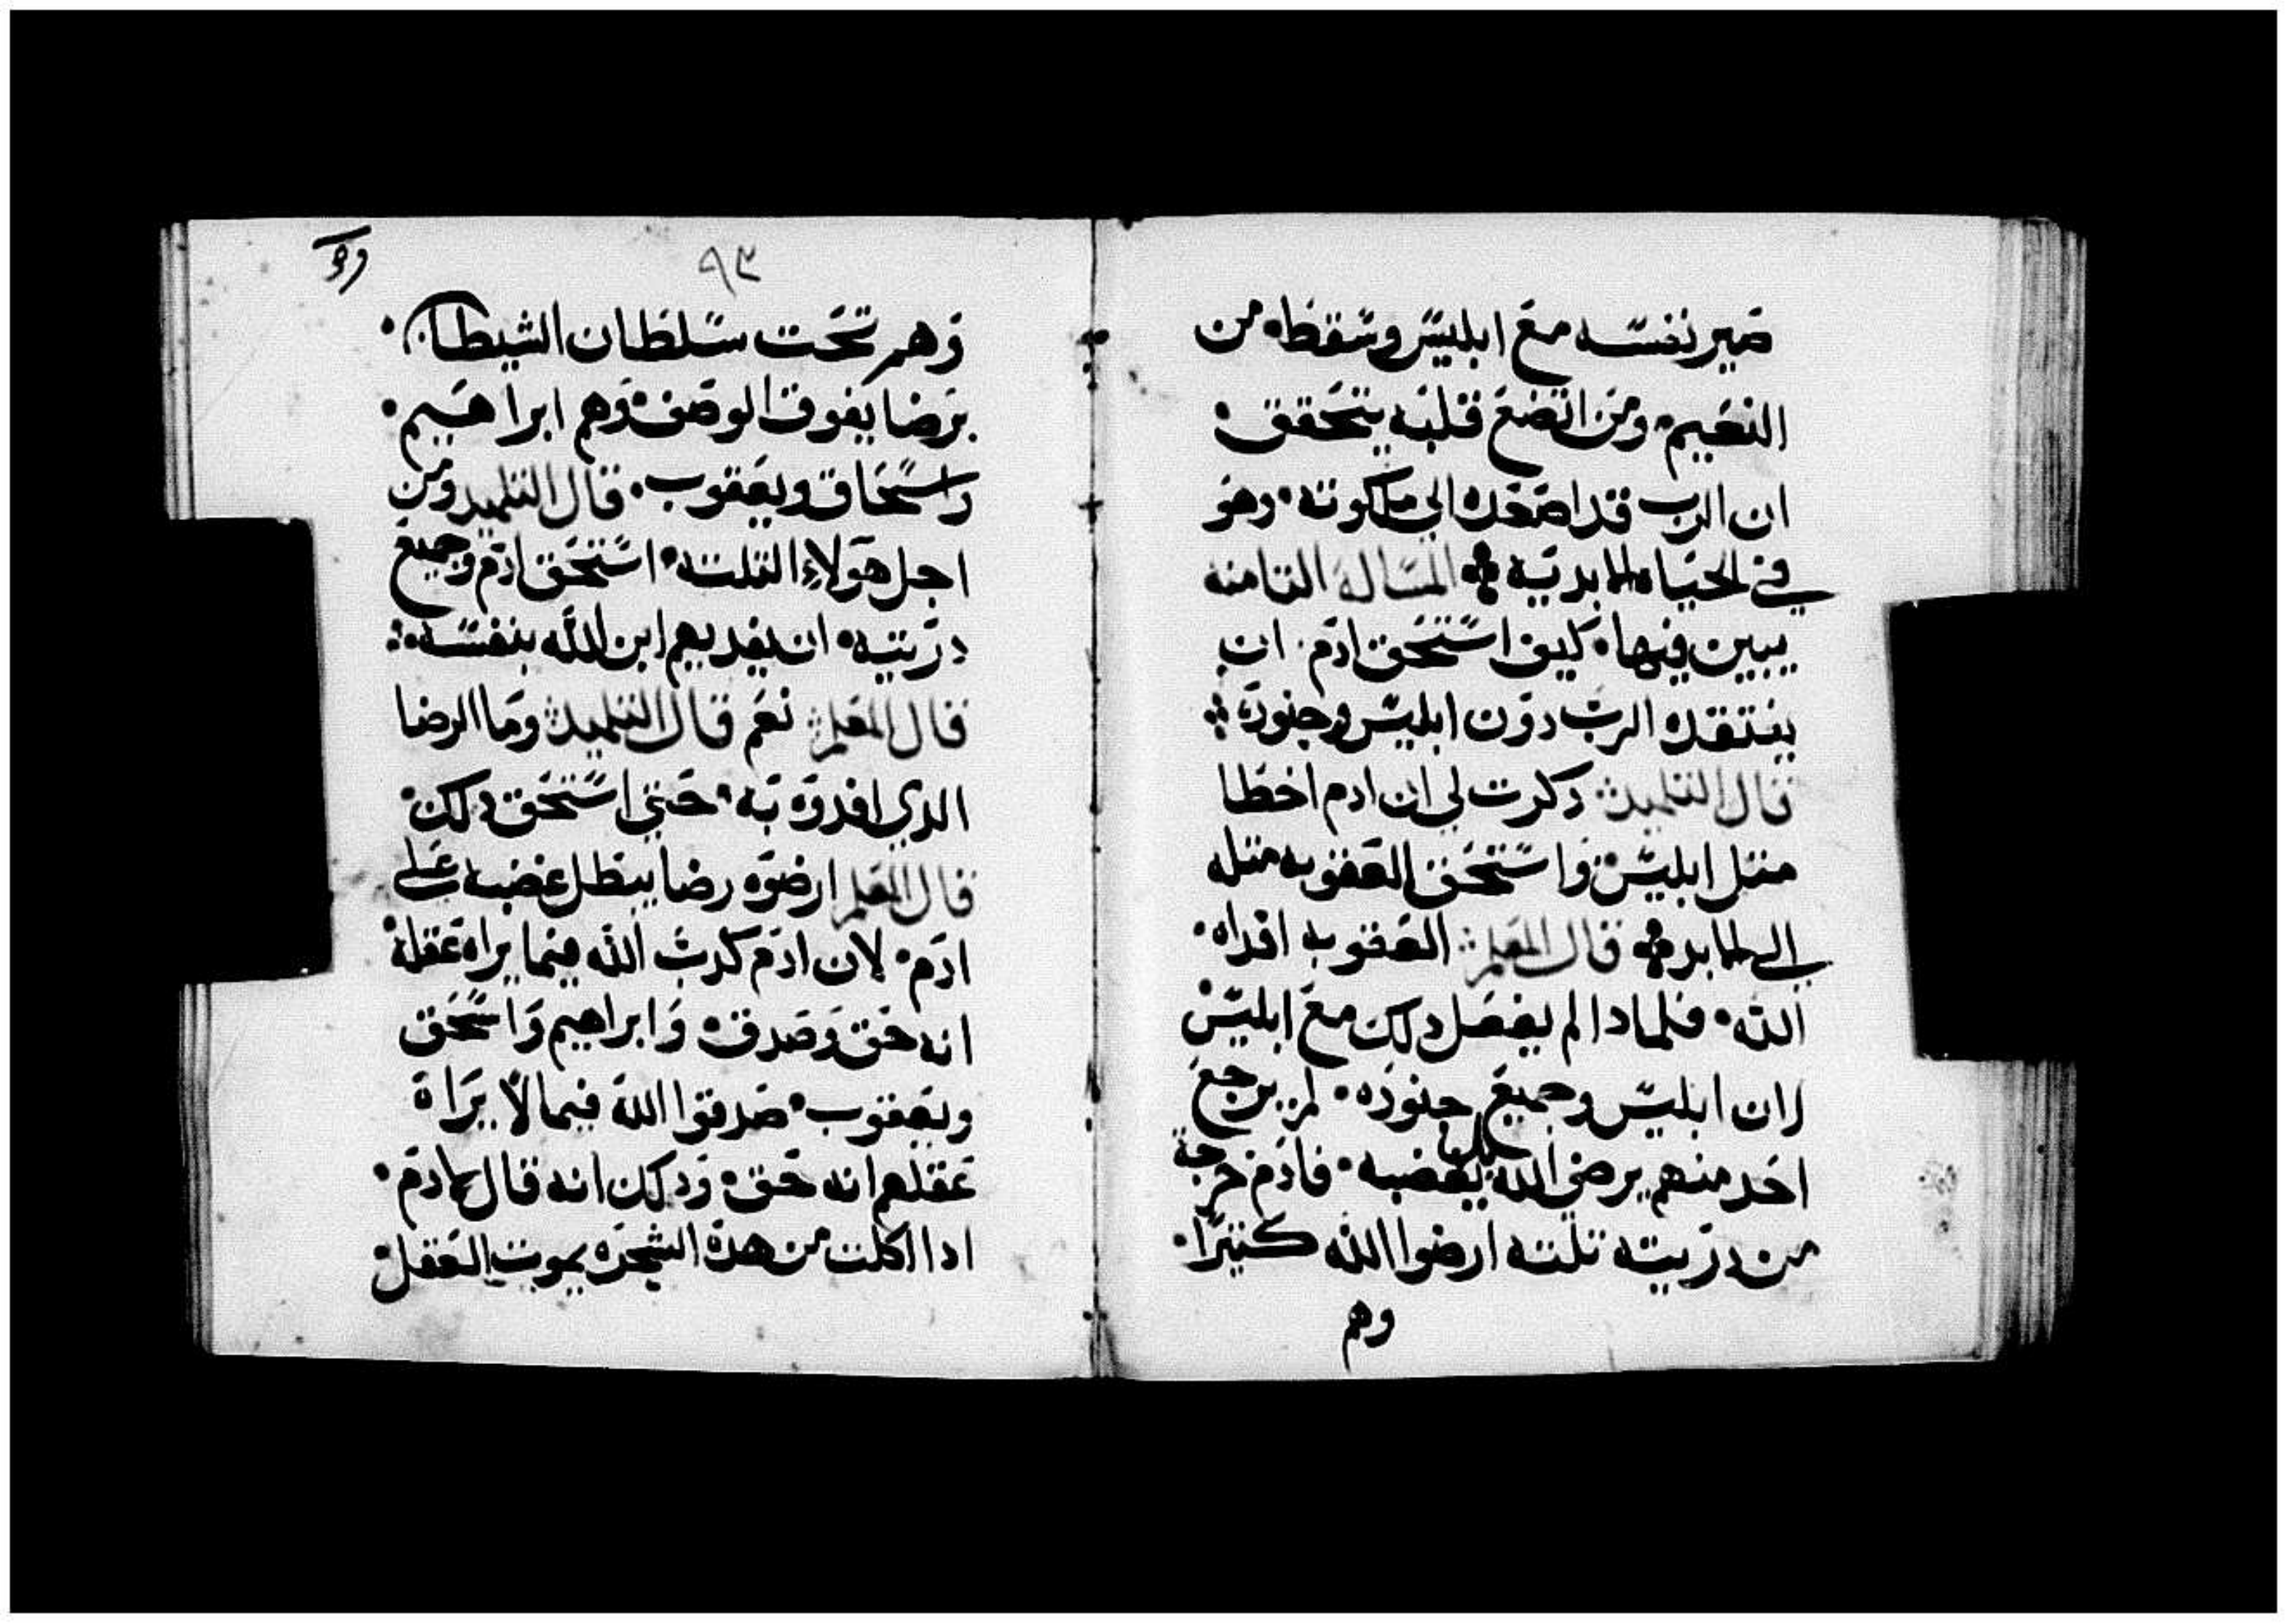 صير نفسه مع ابليس وسقطه من
النعيم ومن اتضع قلبه يتحقق
ان الرب قد اصعده الي ملكوته وهو
في الحياه الابديه المساله التامنه
يبين فيها كيف استحق ادم ان
يفتقده الرب دون ابليس وجنوده
قال التلميد دكرت لي ان ادم اخطا
متل ابليس واستحق العقوبه متله
الي الابد قال المعلم العقوبه افداه
الله فلمادا لم يفعل دلك مع ابليس
لان ابليس وجميع جنوده لم يرجع
احد منهم يرضي الله بغضبه فادم خرج
من دريته تلته ارضوا الله كتيرا
وهم
٩٣
وهم تحت سلطان الشيطان
برضا يفوق الوصف وهم ابراهيم
واسحاق ويعقوب قال التلميد ومن
اجل هولاء التلته استحق ادم وجميع
دريته ان يفديهم ابن الله بنفسه
قال المعلم نعم قال التلميد وما الرضا
الدي افدوه به حتي استحق دلك
قال المعلم ارضوه رضا يبطل غضبه علي
ادم لان ادم كدب الله فيما يراه عقله
انه حق وصدق وابراهيم واسحق
ويعقوب صدقوا الله فيما لا يراه
عقلهم انه حق ودلك انه قال لادم
ادا اكلت من هده الشجره يموت العقل